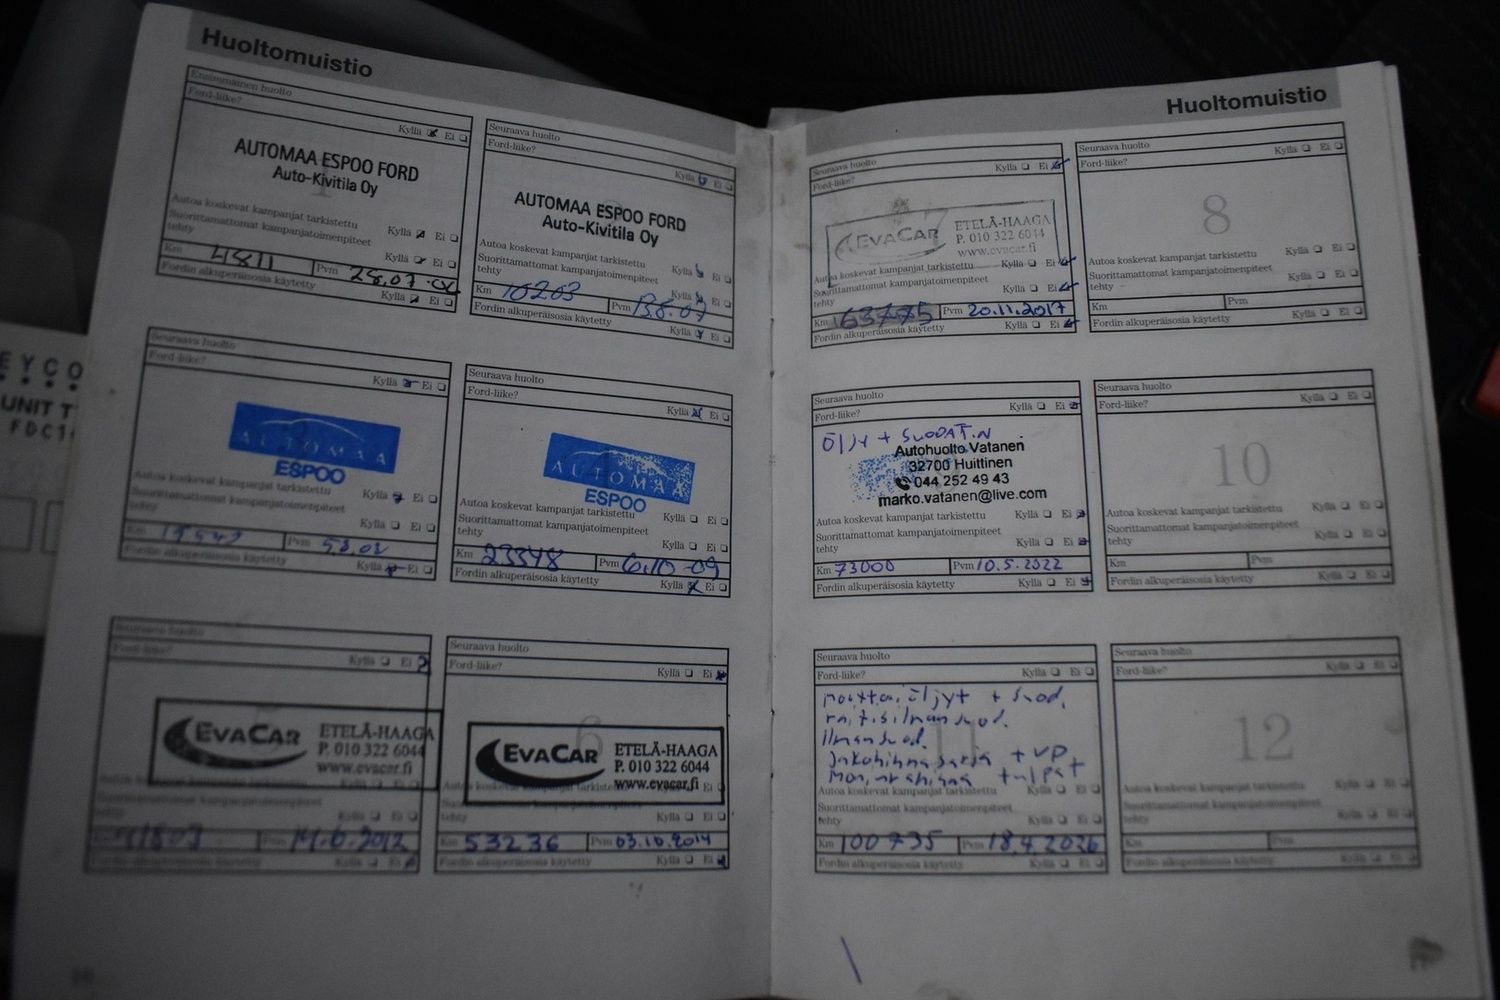 Huoltomuistio
Ensimmäinen huolto
Ford-liike?
Kyllä Ei
AUTOMAA ESPOO FORD
Auto-Kivitila Oy
Autoa koskevat kampanjat tarkistettu
Kyllä Ei
Suorittamattomat kampanjatoimenpiteet
tehty
Kyllä Ei
Km 4811 Pvm
Fordin alkuperäisosia käytetty
Kyllä Ei
Seuraava huolto
Ford-liike?
Kyllä Ei
AUTOMAA ESPOO FORD
Auto-Kivitila Oy
Autoa koskevat kampanjat tarkistettu
Kyllä Ei
Suorittamattomat kampanjatoimenpiteet
tehty
Kyllä Ei
Km 10203 Pvm
Fordin alkuperäisosia käytetty
Kyllä Ei
Seuraava huolto
Ford-liike?
Kyllä Ei
AUTOMAA
ESPOO
Autoa koskevat kampanjat tarkistettu
Kyllä Ei
Suorittamattomat kampanjatoimenpiteet
tehty
Kyllä Ei
Km Pvm
Fordin alkuperäisosia käytetty
Kyllä Ei
Seuraava huolto
Ford-liike?
Kyllä Ei
4
AUTOMAA
ESPOO
Autoa koskevat kampanjat tarkistettu
Kyllä Ei
Suorittamattomat kampanjatoimenpiteet
tehty
Kyllä Ei
Km 23348 Pvm 6.10-09
Fordin alkuperäisosia käytetty
Kyllä Ei
Seuraava huolto
Ford-liike?
Kyllä Ei
5
EVACAR ETELÄ-HAAGA
P. 010 322 6044
www.evacar.fi
Kyllä Ei
Suorittamattomat kampanjatoimenpiteet
tehty
Kyllä Ei
Km 41803 Pvm 14.6.2012
Fordin alkuperäisosia käytetty
Kyllä Ei
Seuraava huolto
Ford-liike?
Kyllä Ei
6
EVACAR ETELÄ-HAAGA
P. 010 322 6044
www.evacar.fi
Autoa koskevat kampanjat tarkistettu
Kyllä Ei
Suorittamattomat kampanjatoimenpiteet
tehty
Kyllä Ei
Km 53236 Pvm 03.10.2014
Fordin alkuperäisosia käytetty
Kyllä Ei
Huoltomuistio
Seuraava huolto
Kyllä Ei
Ford-liike?
7
EVACAR ETELÄ-HAAGA
P. 010 322 6044
www.evacar.fi
Autoa koskevat kampanjat tarkistettu
Kyllä Ei
Suorittamattomat kampanjatoimenpiteet
tehty
Kyllä Ei
Km 63775 Pvm 20.11.2017
Fordin alkuperäisosia käytetty Kyllä Ei
Seuraava huolto
Ford-liike?
Kyllä Ei
8
Autoa koskevat kampanjat tarkistettu
Kyllä Ei
Suorittamattomat kampanjatoimenpiteet
tehty
Kyllä Ei
Km Pvm
Fordin alkuperäisosia käytetty Kyllä Ei
Seuraava huolto
Ford-liike?
Kyllä Ei
ÖLJY + SUODATIN
Autohuolto Vatanen
32700 Huittinen
044 252 49 43
marko.vatanen@live.com
Autoa koskevat kampanjat tarkistettu
Kyllä Ei
Suorittamattomat kampanjatoimenpiteet
tehty
Kyllä Ei
Km 73000 Pvm 10.5.2022
Fordin alkuperäisosia käytetty Kyllä Ei
Seuraava huolto
Ford-liike?
Kyllä Ei
10
Autoa koskevat kampanjat tarkistettu
Kyllä Ei
Suorittamattomat kampanjatoimenpiteet
tehty
Kyllä Ei
Km Pvm
Fordin alkuperäisosia käytetty Kyllä Ei
Seuraava huolto
Ford-liike?
Kyllä Ei
11
moottoriöljyt + suod.
raitisilmansuod.
Ilmansuod.
Jakohihnasarja + VP
Moniurahihna + tulpat
Autoa koskevat kampanjat tarkistettu
Kyllä Ei
Suorittamattomat kampanjatoimenpiteet
tehty
Kyllä Ei
Km 100735 Pvm 18.4.2026
Fordin alkuperäisosia käytetty Kyllä Ei
Seuraava huolto
Ford-liike?
Kyllä Ei
12
Autoa koskevat kampanjat tarkistettu
Kyllä Ei
Suorittamattomat kampanjatoimenpiteet
tehty
Kyllä Ei
Km Pvm
Fordin alkuperäisosia käytetty Kyllä Ei
EYCO
UNIT T